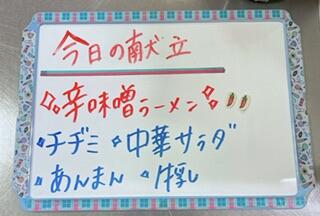 今日の献立
辛味噌ラーメン
チヂミ 中華サラダ
あんまん 牛乳